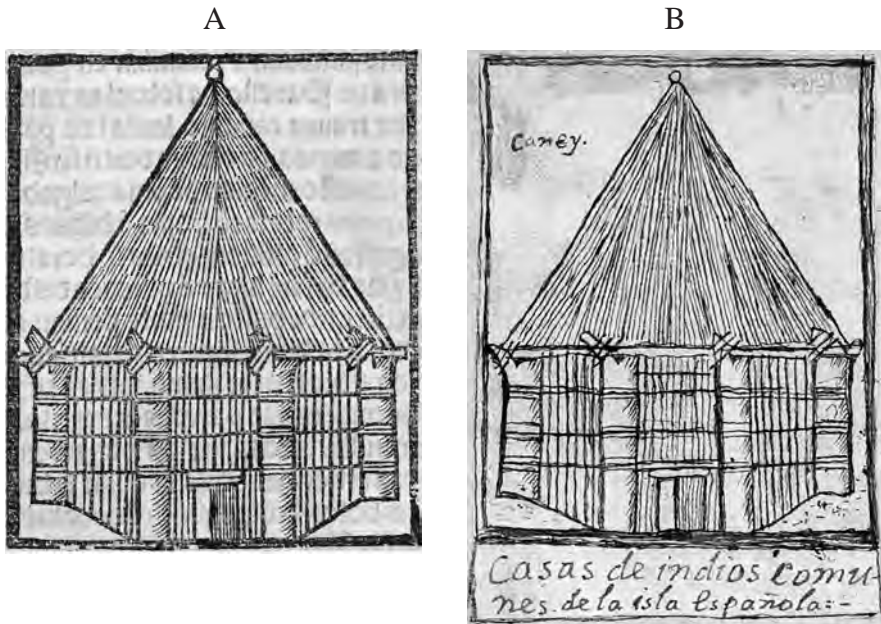 A
B
Caney.
Casas de indios comu-
nes de la isla Española:-